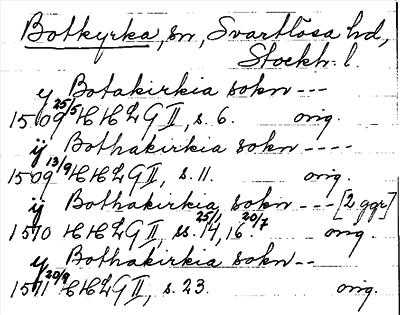 Botkyrka, sn, Svartlösa hd,
Stockh. l.
y Botakirkia sokn ---
1509 25/5 HHLG II, s. 6. orig.
ij Bothakirkia sokn ----
1509 13/9 HHLG II, s. 11. orig.
ij Bothakirkia sokn --- [2 ggr]
1510 HHLG II, ss. 14, 25/1 16 20/7 orig.
y Bothakirkia sokn --
1511 20/9 HHLG II, s. 23. orig.